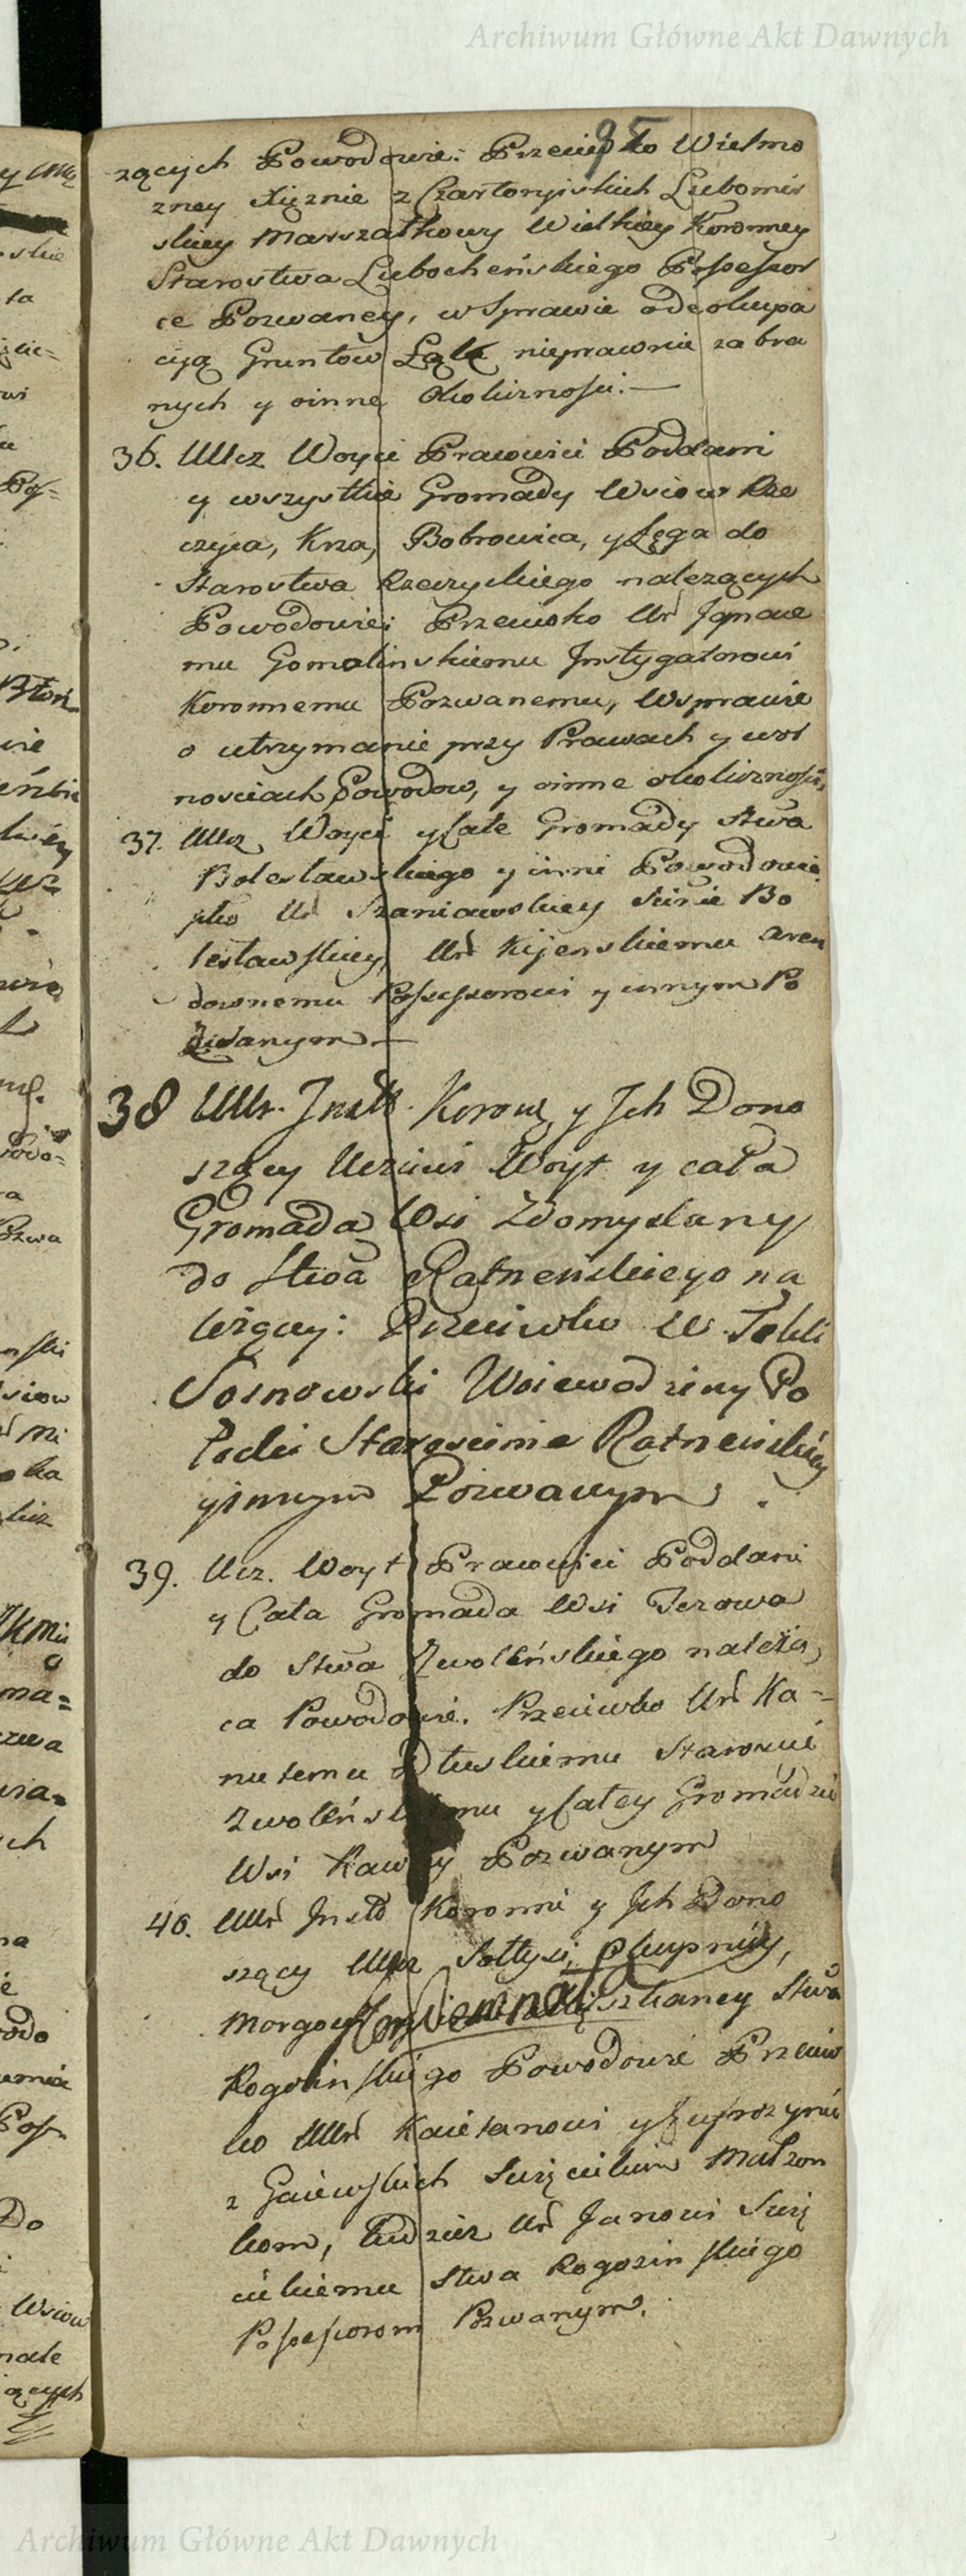 Archiwum Główne Akt Dawnych
95
zących Powodowie: Przeciwko Wielmo
zney Xiężnie z Czartoryiskich Lubomir
skiey Marszałkowy Wielkiey Koronney
Starostwa Lubocheńskiego Possessor
ce Pozwaney, w Sprawie o deokupa
cyą Gruntów Łąk nieprawnie zabra
nych y o inne Okolicznosci.—
36. UUcz Woyci Prawnici Poddani
y wszystkie Gromady Wsiow Rze
czyca, Krza, Bobrowica, y Łęga do
Starostwa Rzeczyckiego nalezących
Powodowie: Przeciwko Ur Ignace
mu Gomolinskiemu Instygatorowi
Koronnemu Pozwanemu, W sprawie
o utrzymanie przy Prawach y wol
nosciach Powodow, y o inne okolicznosci,
37. UUcz Woyci y Całe Gromady Stwa
Bolesławskiego y inni Powodowie
ptko Ur Szaniawskiey Scinie Bo
lesławskiey, Ur Kijenskiemu aren
downemu Possessorowi y innym Po
zwanym—
38 UUr. Inst. Koron. y Ich Dono
szący Uczciwi Woyt y cała
Gromada Wsi Zdomyslany
do Stwa Ratnenskiego na
lezący: Przeciwko W. Tekli
Sosnowski Woiewodziny Po
łocki Starościnie Ratnenskiey
y innym Pozwanym.
39. Ucz. Woyt Prawnici Poddani
y Cała Gromada Wsi Jezowa
do Stwa Zwoleńskiego należą
ca Powodowie. Przeciwko Ur Ka-
nutemu Dłuskiemu Staroscie
Zwoleńskiemu y Całey Gromadzie
Wsi Kawęcy Pozwanym
40. UUr Inst Koronni y Ich Dono
szący UUcz Sołtysi, Okupnicy,
Morgowi Stwa
Rogozinskiego Powodowie Przeciw
ko UUr Kaietanowi y Eufrozynie
z Gaiewskich Suięcickim Małzon
kom, tudziez Ur Janowi Suię
cickiemu Stwa Rogozinskiego
Possessorom Pozwanym.
Archiwum Główne Akt Dawnych